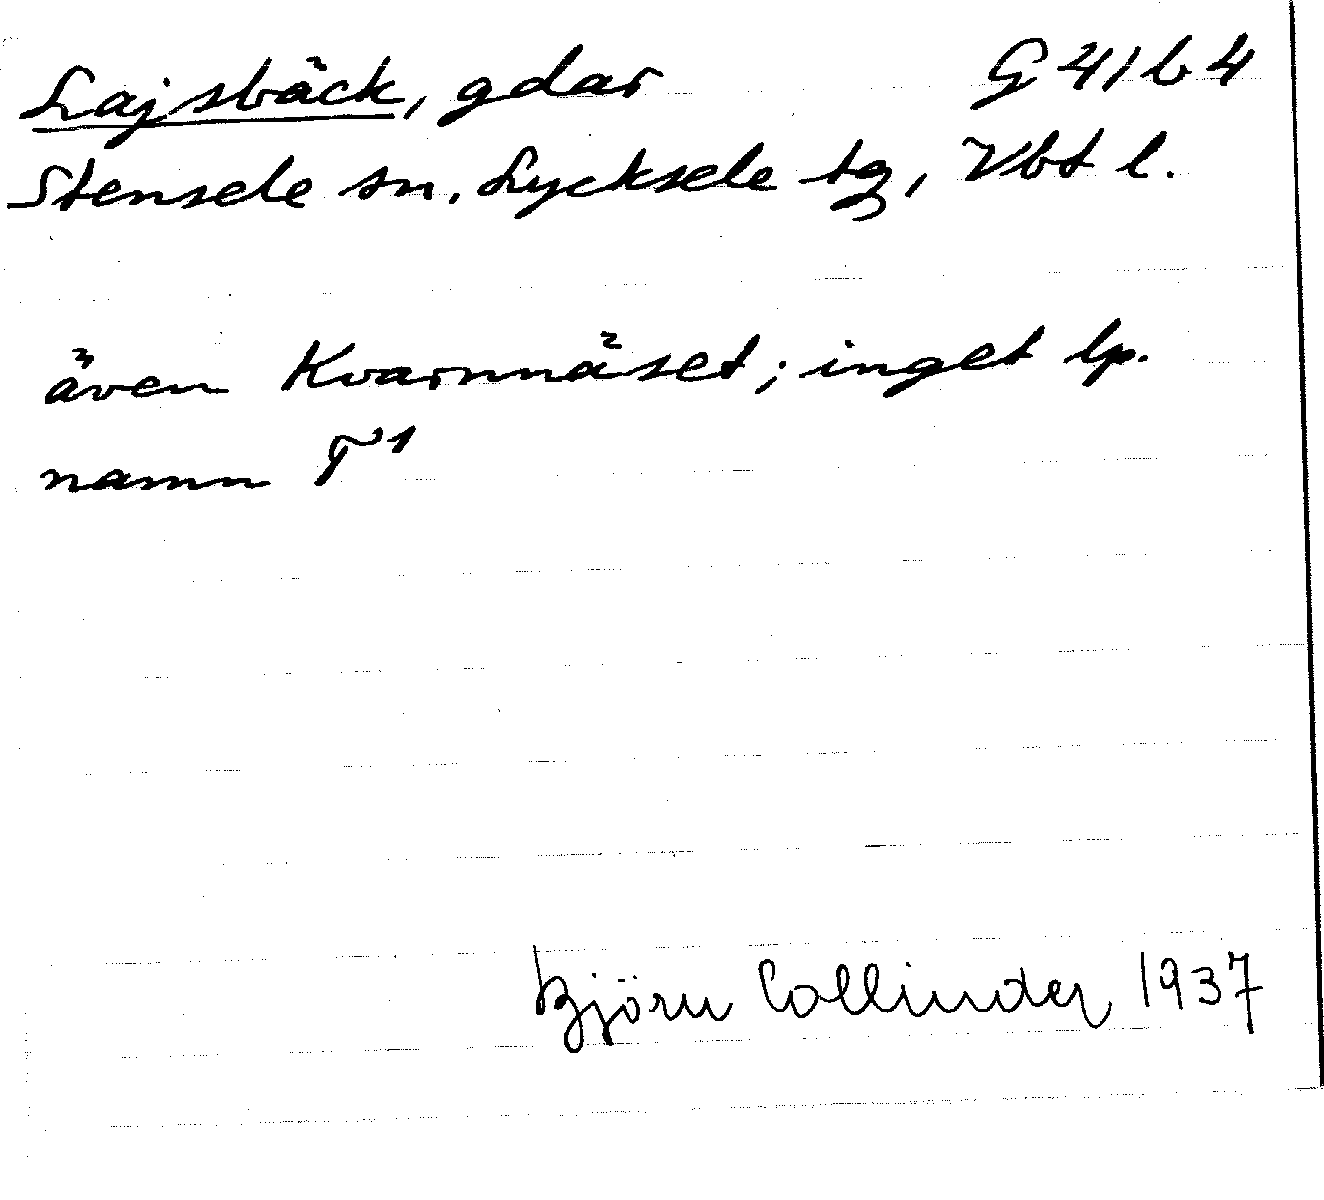 Lajsbäck, gdar G 41 b 4
Stensele sn, Lycksele tg, Vbt l.
även Kvarnnäset; inget lp.
namn T¹
Björn Collinder 1937